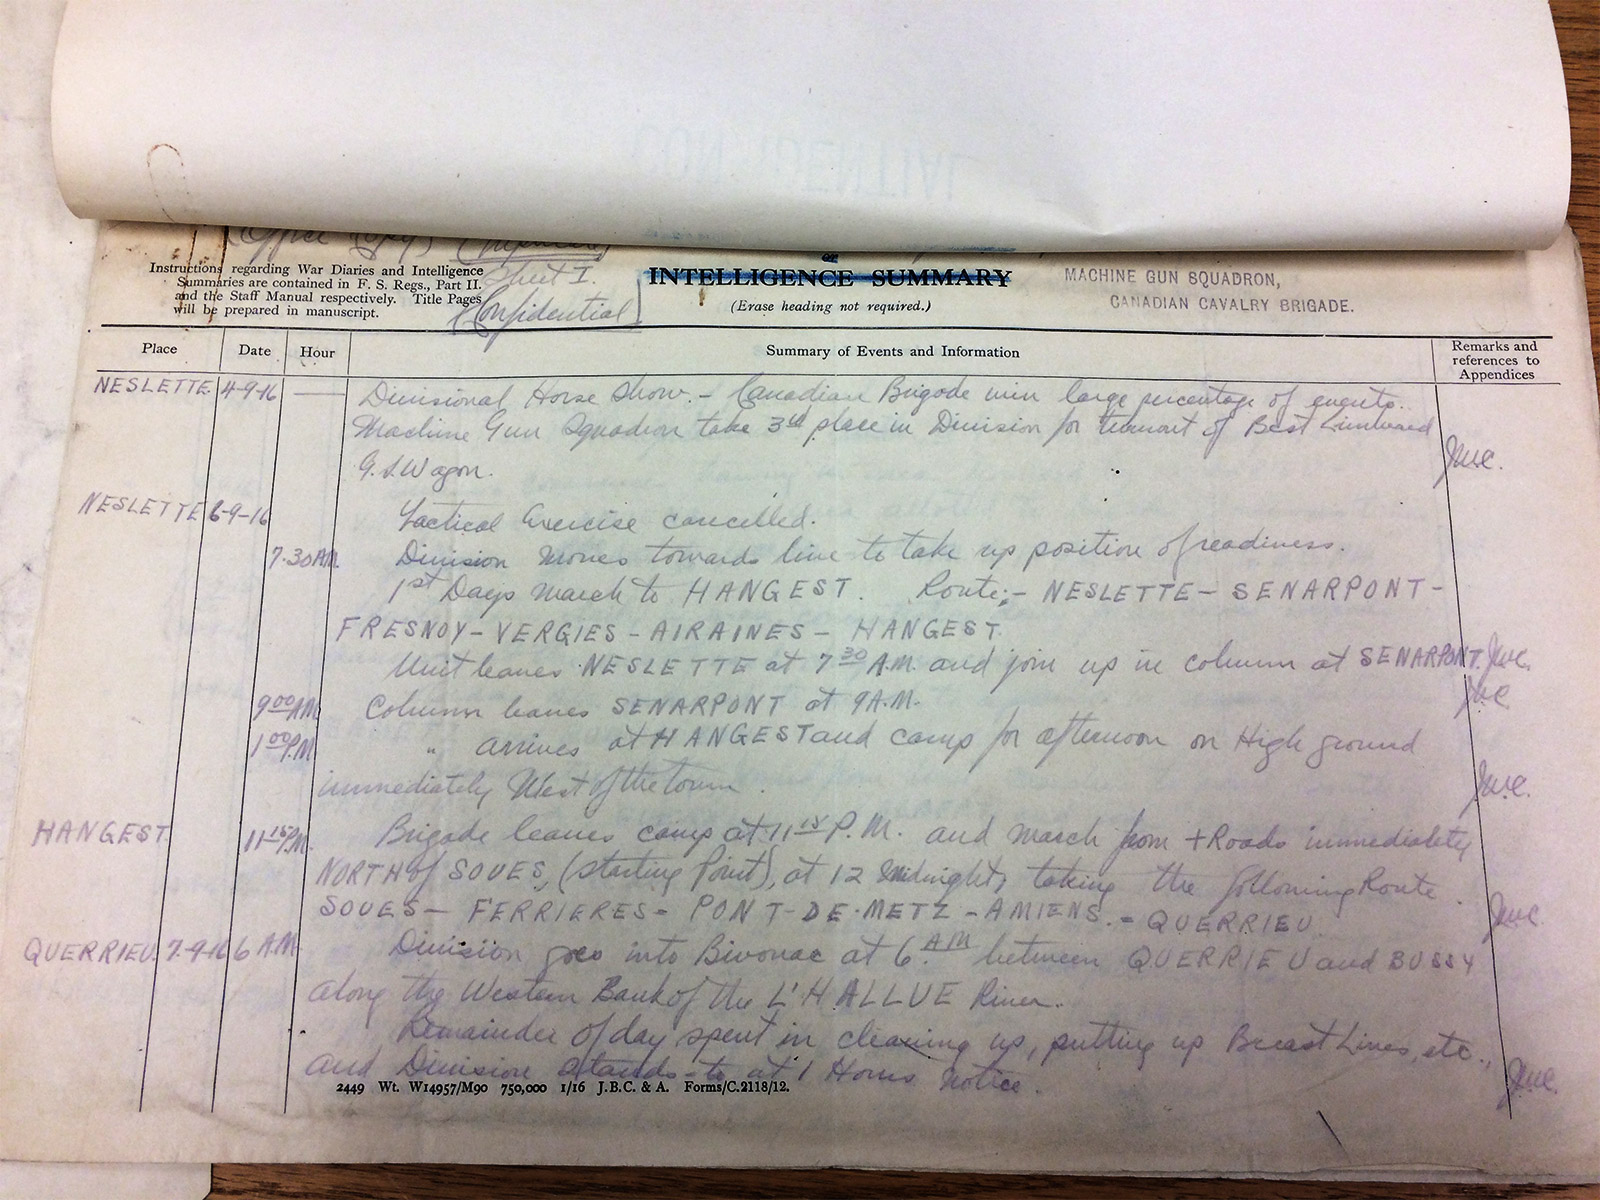 (Office Copy)
Sheet I.
Confidential
Instructions regarding War Diaries and Intelligence
Summaries are contained in F. S. Regs., Part II.
and the Staff Manual respectively. Title Pages
will be prepared in manuscript.
or
INTELLIGENCE SUMMARY
(Erase heading not required.)
MACHINE GUN SQUADRON,
CANADIAN CAVALRY BRIGADE.
Place Date Hour Summary of Events and Information Remarks and references to Appendices
NESLETTE 4-9-16 Divisional Horse Show. - Canadian Brigade win large percentage of events.
Machine Gun Squadron take 3rd place in Division for turnout of Best Limbered
G.S. Wagon.
NESLETTE 6-9-16 Tactical Exercise cancelled.
7.30 AM. Division moves towards line to take up position of readiness.
1st Days march to HANGEST. Route:- NESLETTE - SENARPONT -
FRESNOY - VERGIES - AIRAINES - HANGEST.
Unit leaves NESLETTE at 7 30 A.M. and join up in column at SENARPONT.
9 00 AM Column leaves SENARPONT at 9 A.M.
1 00 P.M. " arrives at HANGEST and camp for afternoon on High ground
immediately West of the town.
HANGEST. 11 15 P.M. Brigade leaves camp at 11 15 P.M. and march from + Roads immediately
NORTH of SOUES, (starting Point), at 12 Midnight, taking the following Route.
SOUES - FERRIERES - PONT-DE-METZ - AMIENS. - QUERRIEU.
QUERRIEU. 7-9-16 6 A.M. Division goes into Bivouac at 6. AM between QUERRIEU and BUSSY
along the Western Bank of the L'HALLUE River.
Remainder of day spent in cleaning up, putting up Breast Lines, etc.,
and Division stands-to at 1 Hours Notice.
2449 Wt. W14957/M90 750,000 1/16 J.B.C. & A. Forms/C.2118/12.